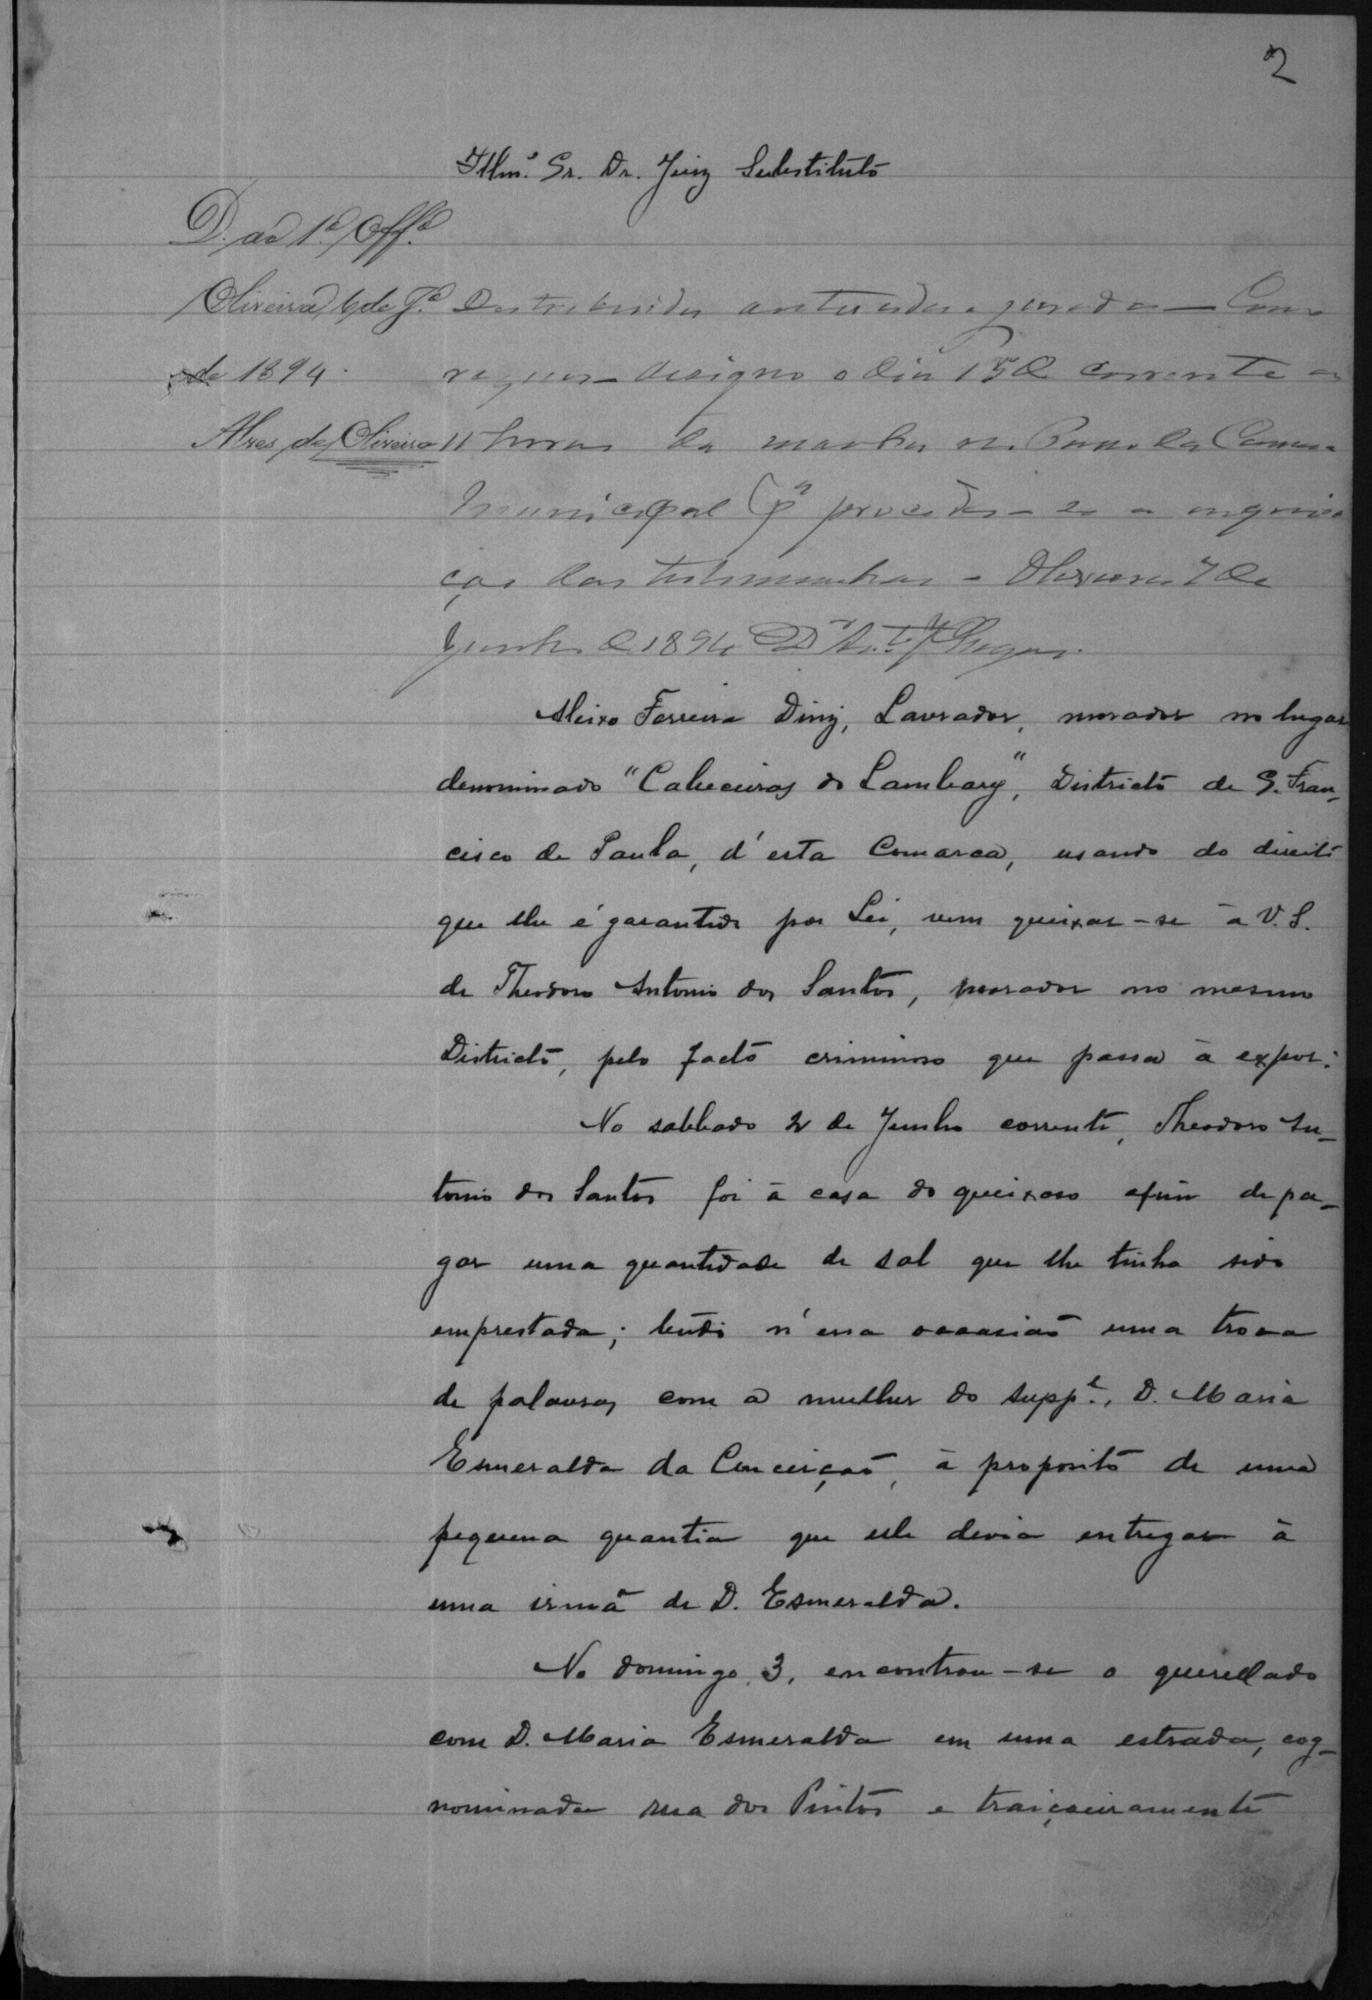 2
Illmº. Sr. Dr. Juiz Substituto
D. ao 1º Offº.
Oliveira, 6 de Jº.
de 1894.
Alves de Oliveira
Destribuida autuada e jurada — Como
requer — designo o dia 15 de corrente as
11 horas da manha no Paço da Camara
Municipal pª proceder-se a inquiri
ção das testemunhas – Oliveira 7 de
Junho de 1894
Aleixo Ferreira Diniz, Lavrador, morador no lugar
denominado "Cabeceiras do Lambary", Districto de S. Fran-
cisco de Paula, d'esta Comarca, usando do direito
que lhe é garantido por Lei, vem queixar-se à V. S.
de Theodoro Antonio dos Santos, morador no mesmo
Districto, pelo facto criminoso que passa à expor:
No sabbado 2 de Junho corrente, Theodoro An-
tonio dos Santos foi à casa do queixoso afim de pa-
gar uma quantidade de sal que lhe tinha sido
emprestada; tendo n'essa occasião uma troca
de palavras com a mulher do suppe., D. Maria
Esmeralda da Conceição, à proposito de uma
pequena quantia que elle devia entregar à
uma irmã de D. Esmeralda.
No domingo, 3, encontrou-se o querellado
com D. Maria Esmeralda em uma estrada, cog-
nominada rua dos Pintos e traiçoeiramente